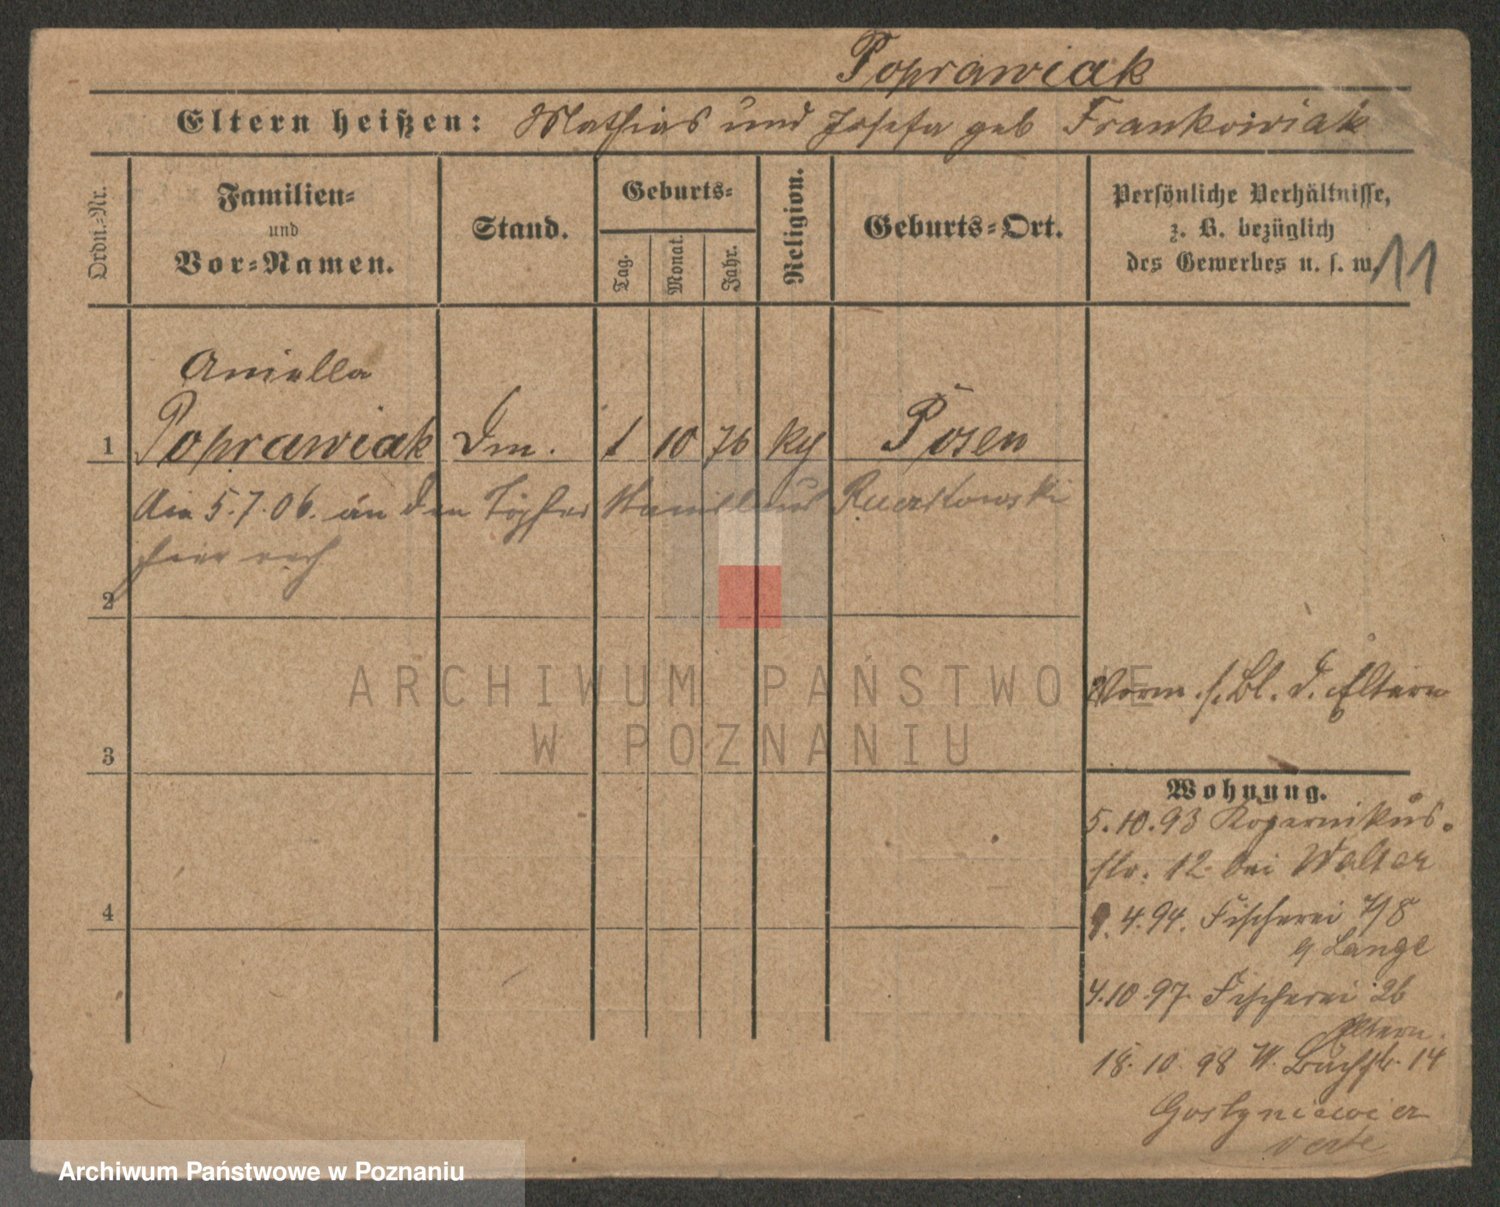 Poprawiak
Eltern heißen: Mathias und Josefa geb Frankowiak
Ordn.-Nr.
Familien-
und
Vor-Namen.
Stand.
Geburts-
Tag.
Monat.
Jahr.
Religion.
Geburts-Ort.
Persönliche Verhältnisse,
z. B. bezüglich
des Gewerbes u. s. w.
11
Aniella
1 Poprawiak Dm. 1 10 76 kg Posen
5.7.06. an den Töpfer Stanislaus
hier
2
3
4
Vorm. s. Bl. d. Eltern
Wohnung.
5.10.93 Kopernikus-
str. 12 bei Walter
9.4.94. Fischerei 7/8
Lange
4.10.97. Fischerei 26
Eltern
18.10.98 W. 14
verte
ARCHIWUM PAŃSTWOWE
W POZNANIU
Archiwum Państwowe w Poznaniu